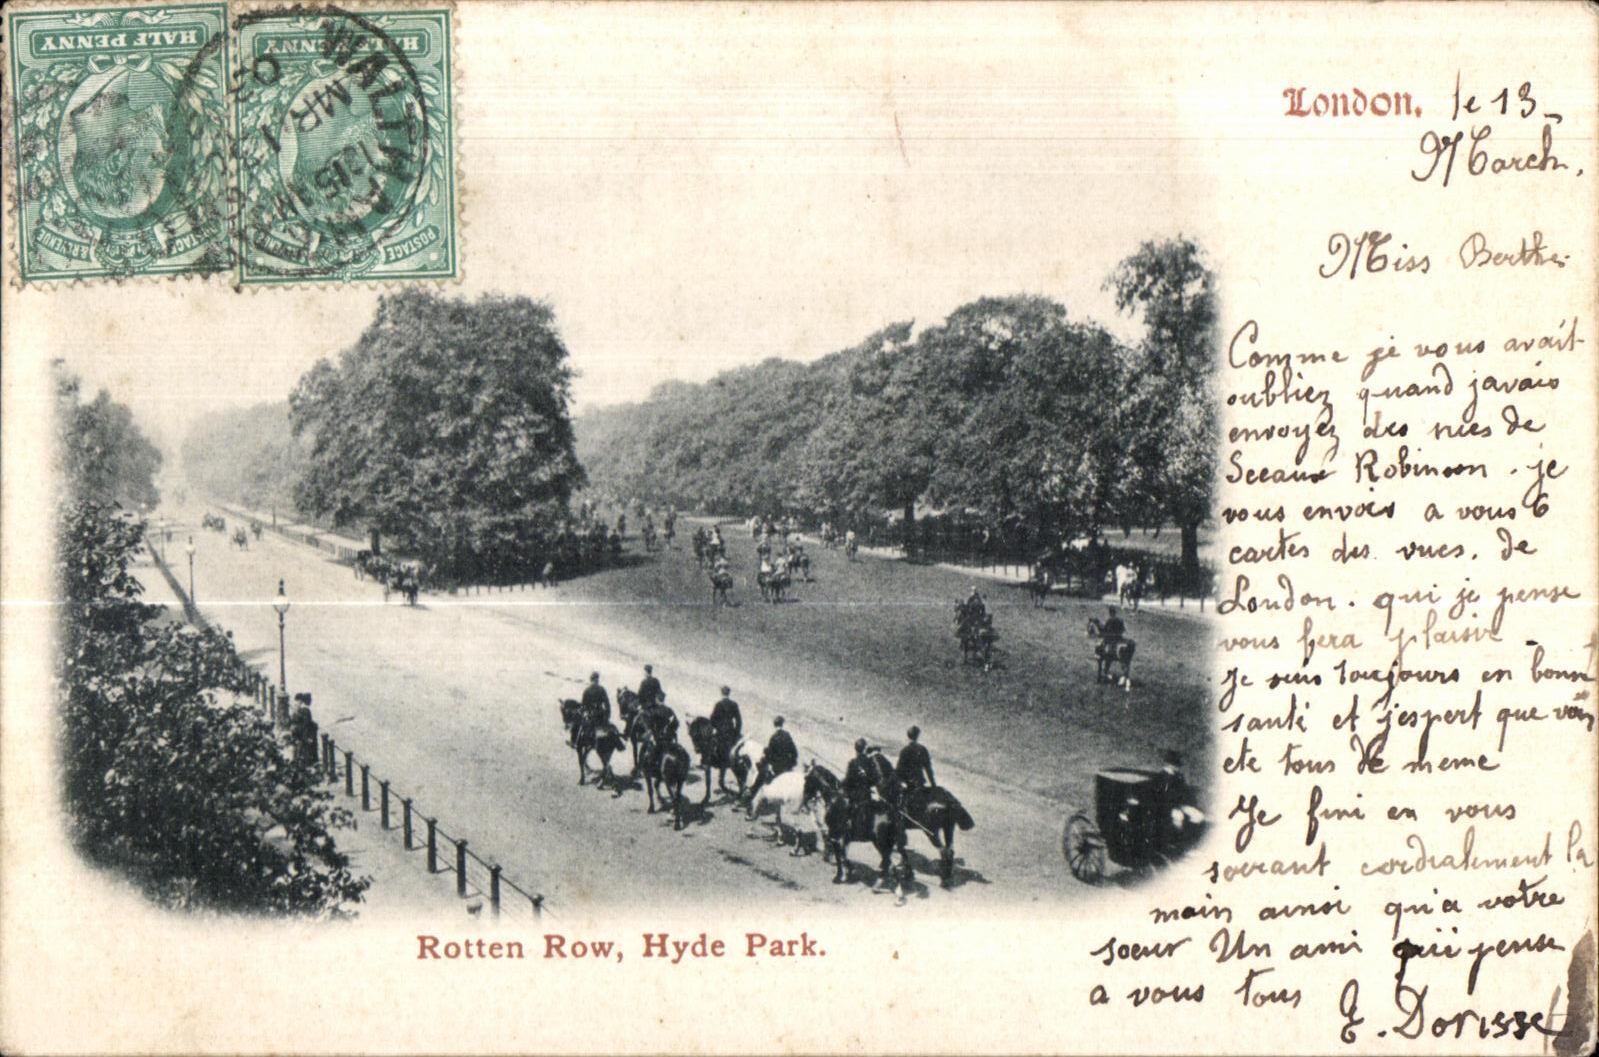 HALF PENNY
HALF PENNY
POSTAGE & REVENUE
POSTAGE
WALTHAM
MR 1
London, le 13_
March.
Miss Berthe
Comme je vous avait
oubliez quand javais
envoyez des vues de
Sceaux Robinson . je
vous envois a vous 6
cartes des vues. de
London. qui je pense
vous fera plaisir _
Je suis toujours en bonne
santé et j'espert que vous
ete tous de meme
Je fini en vous
serrant cordialement la
main ainsi qu'a votre
soeur Un ami qui pense
a vous tous
E. Dorisse
Rotten Row, Hyde Park.